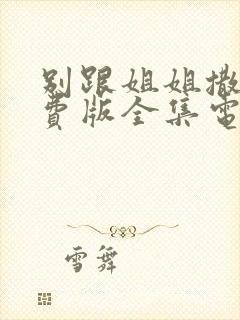 别跟姐姐撒
费版全集電
雪舞